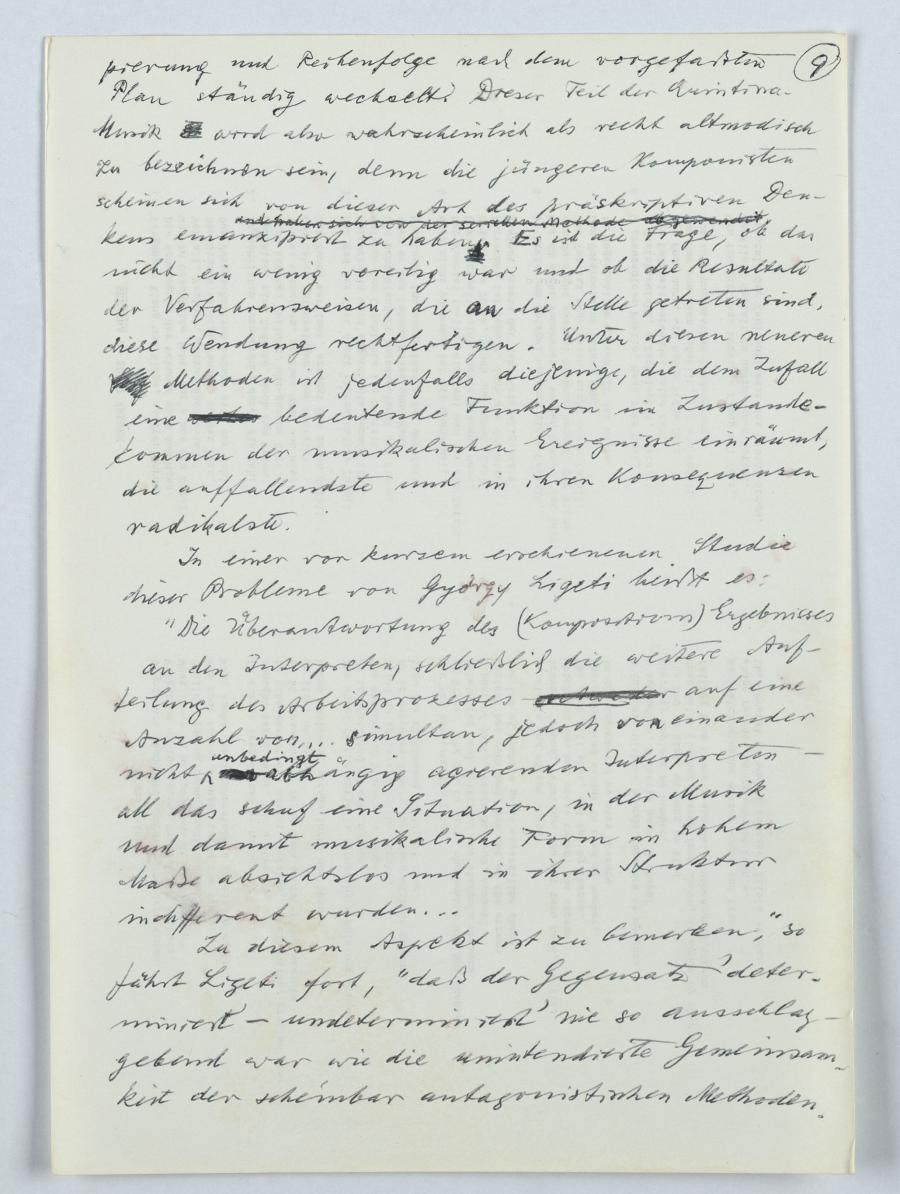 pierung und Reihenfolge nach dem vorgefaßten
9
Plan ständig wechselt. Dieser Teil der Quintina-
Musik wird also wahrscheinlich als recht altmodisch
zu bezeichnen sein, denn die jüngeren Komponisten
scheinen sich von dieser Art des präskriptiven Den-
und haben sich von der seriellen Methode abgewendet.
kens emanzipiert zu haben. Es ist die Frage, ob das
nicht ein wenig voreilig war und ob die Resultate
der Verfahrensweisen, die an die Stelle getreten sind,
diese Wendung rechtfertigen. Unter diesen neueren
Methoden ist jedenfalls diejenige, die dem Zufall
eine bedeutende Funktion im Zustande-
kommen der musikalischen Ereignisse einräumt,
die auffallendste und in ihren Konsequenzen
radikalste.
In einer vor kurzem erschienenen Studie
dieser Probleme von György Ligeti heißt es:
"Die Überantwortung des (Kompositions) Ergebnisses
an den Interpreten, schließlich die weitere Auf-
teilung des Arbeitsprozesses auf eine
Anzahl von... simultan, jedoch voneinander
unbedingt
nicht abhängig agierenden Interpreten –
all das schuf eine Situation, in der Musik
und damit musikalische Form in hohem
Maße absichtslos und in ihrer Struktur
indifferent wurden...
Zu diesem Aspekt ist zu bemerken," so
fährt Ligeti fort, "daß der Gegensatz 'deter-
miniert – undeterminiert' nie so ausschlag-
gebend war wie die unintendierte Gemeinsam-
keit der scheinbar antagonistischen Methoden.